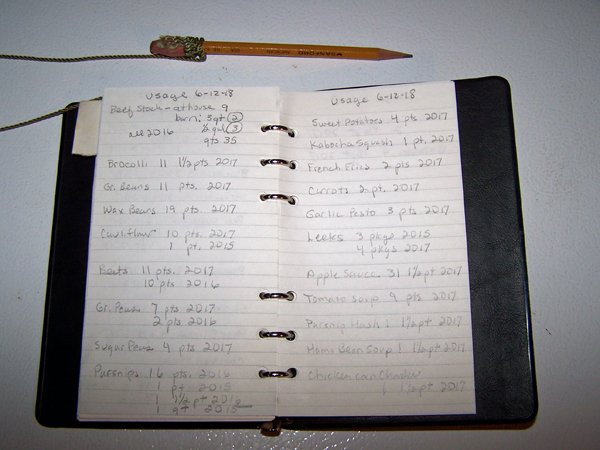 Usage 6-12-18
Beef Stock - at house 9
barn: 3 qt 2
all 2016 ½ gal 3
qts 35
Brocolli 11 1½ pts 2017
Gr. Beans 11 pts. 2017
Wax Beans 19 pts. 2017
Cauliflower 10 pts 2017
1 pt. 2015
Beets 11 pts. 2017
10 pts 2016
Gr. Peas 7 pts 2017
2 pts 2016
Sugar Peas 4 pts 2017
Parsnips 16 pts. 2016
1 pt 2015
1 1½ pt 2016
1 qt 2015
Usage 6-12-18
Sweet Potatoes 4 pts 2017
Kabocha Squash 1 pt, 2017
French Fries 2 pts 2017
Carrots 2 pt. 2017
Garlic Pesto 3 pts 2017
Leeks 3 pkgs 2015
4 pkgs 2017
Apple Sauce 31 1½ pt 2017
Tomato Soup 9 pts 2017
Parsnip Hash 1 1½ pt 2017
Ham & Bean Soup 1 1½ pt 2017
Chicken Corn Chowder
1 1½ pt 2017